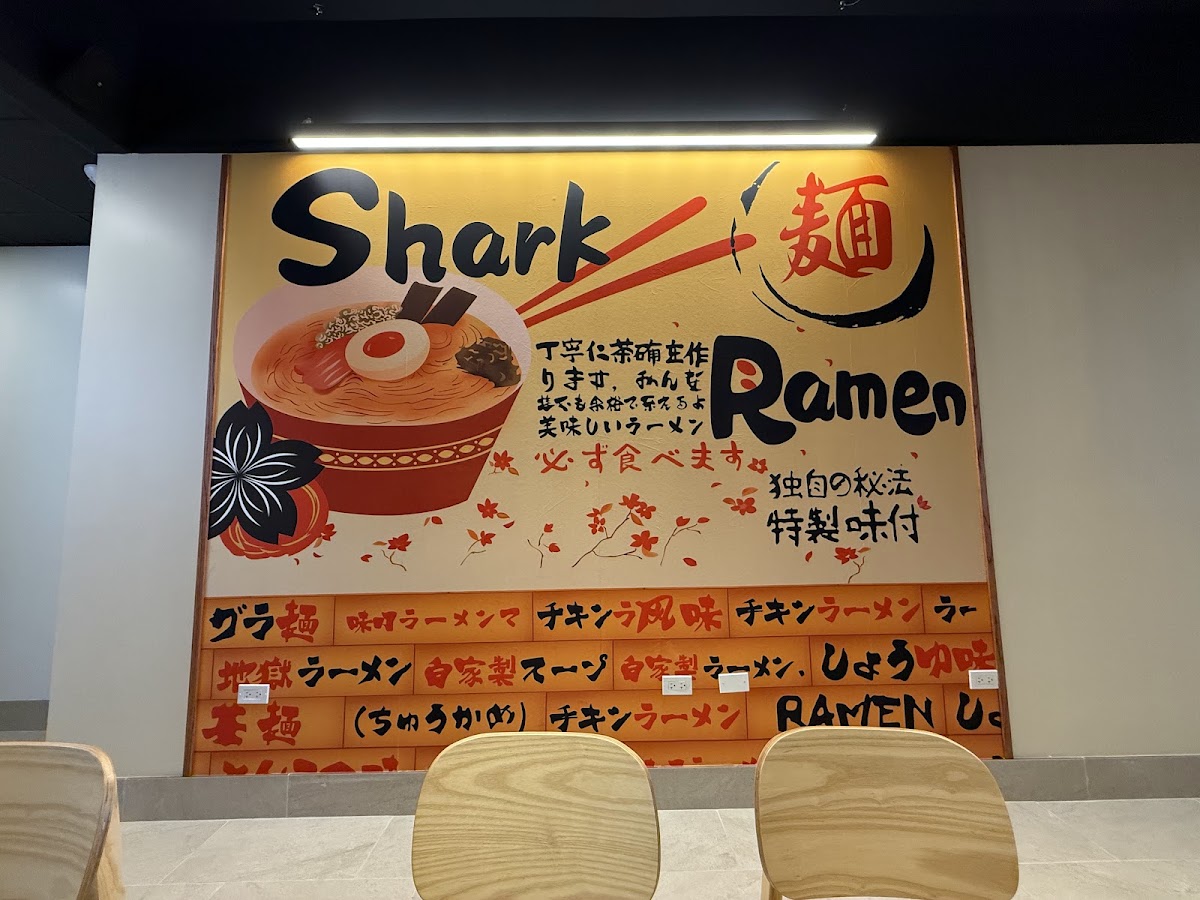 Shark
麺
Ramen
丁寧に
作
ります。みんな
美味しいラーメン
必ず食べます
独自の秘法
特製味付
ガラ麺
味付ラーメンて
チキンラ风味
チキンラーメン
ラー
地獄ラーメン
自家製スープ
自家製ラーメン.
しょうゆ味
麺
(ちゅうかめ)
チキンラーメン
RAMEN